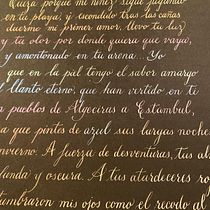 Quizá porque mi niñez sigue jugando
en tu playa, y escondido tras las cañas
duerme mi primer amor, llevo tu luz
y tu olor por donde quiera que vaya,
y amontonado en tu arena... Yo
que en la piel tengo el sabor amargo
l llanto eterno, que han vertido en ti
n pueblos de Algeciras a Estambul,
a que pintes de azul sus largas noches
nvierno. A fuerza de desventuras, tu al
funda y oscura. A tus atardeceres ro
tumbraron mis ojos como el recodo al